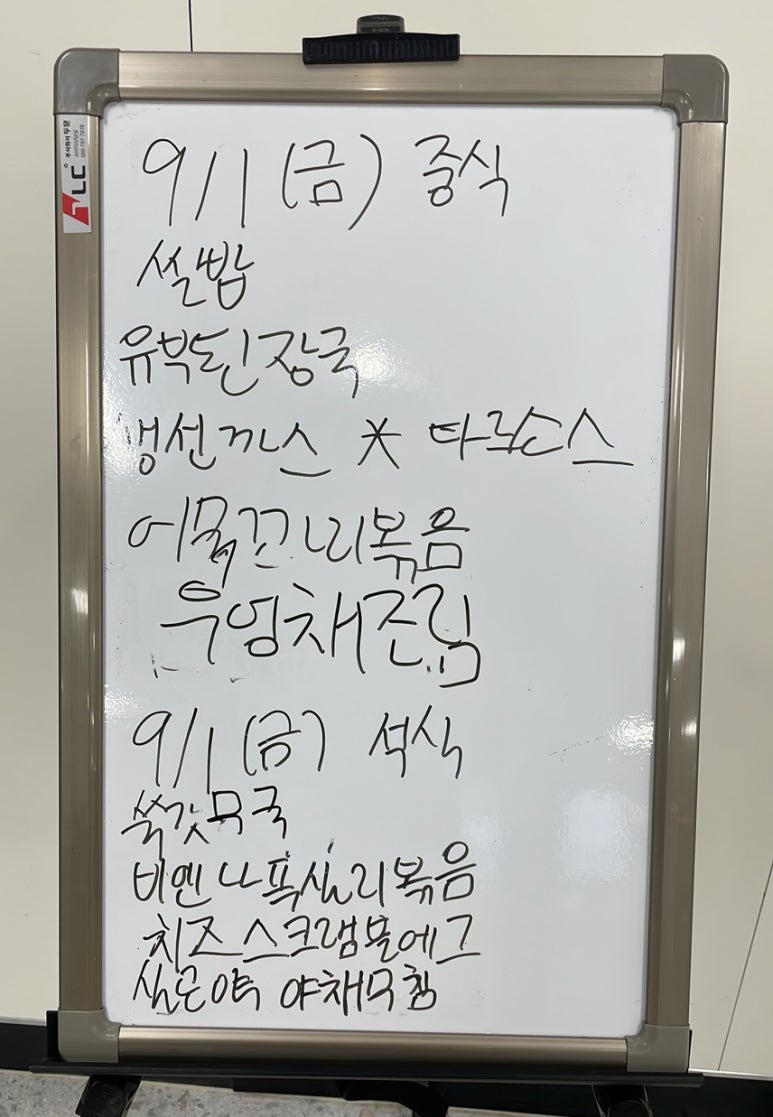 9/1 (금) 중식
쌀밥
유부된장국
생선까스 * 타르소스
어묵꼬리볶음
우엉채조림
9/1 (금) 석식
쑥갓무국
비엔나폭찹볶음
치즈스크램블에그
실곤약 야채무침
ALC
주식회사 두문